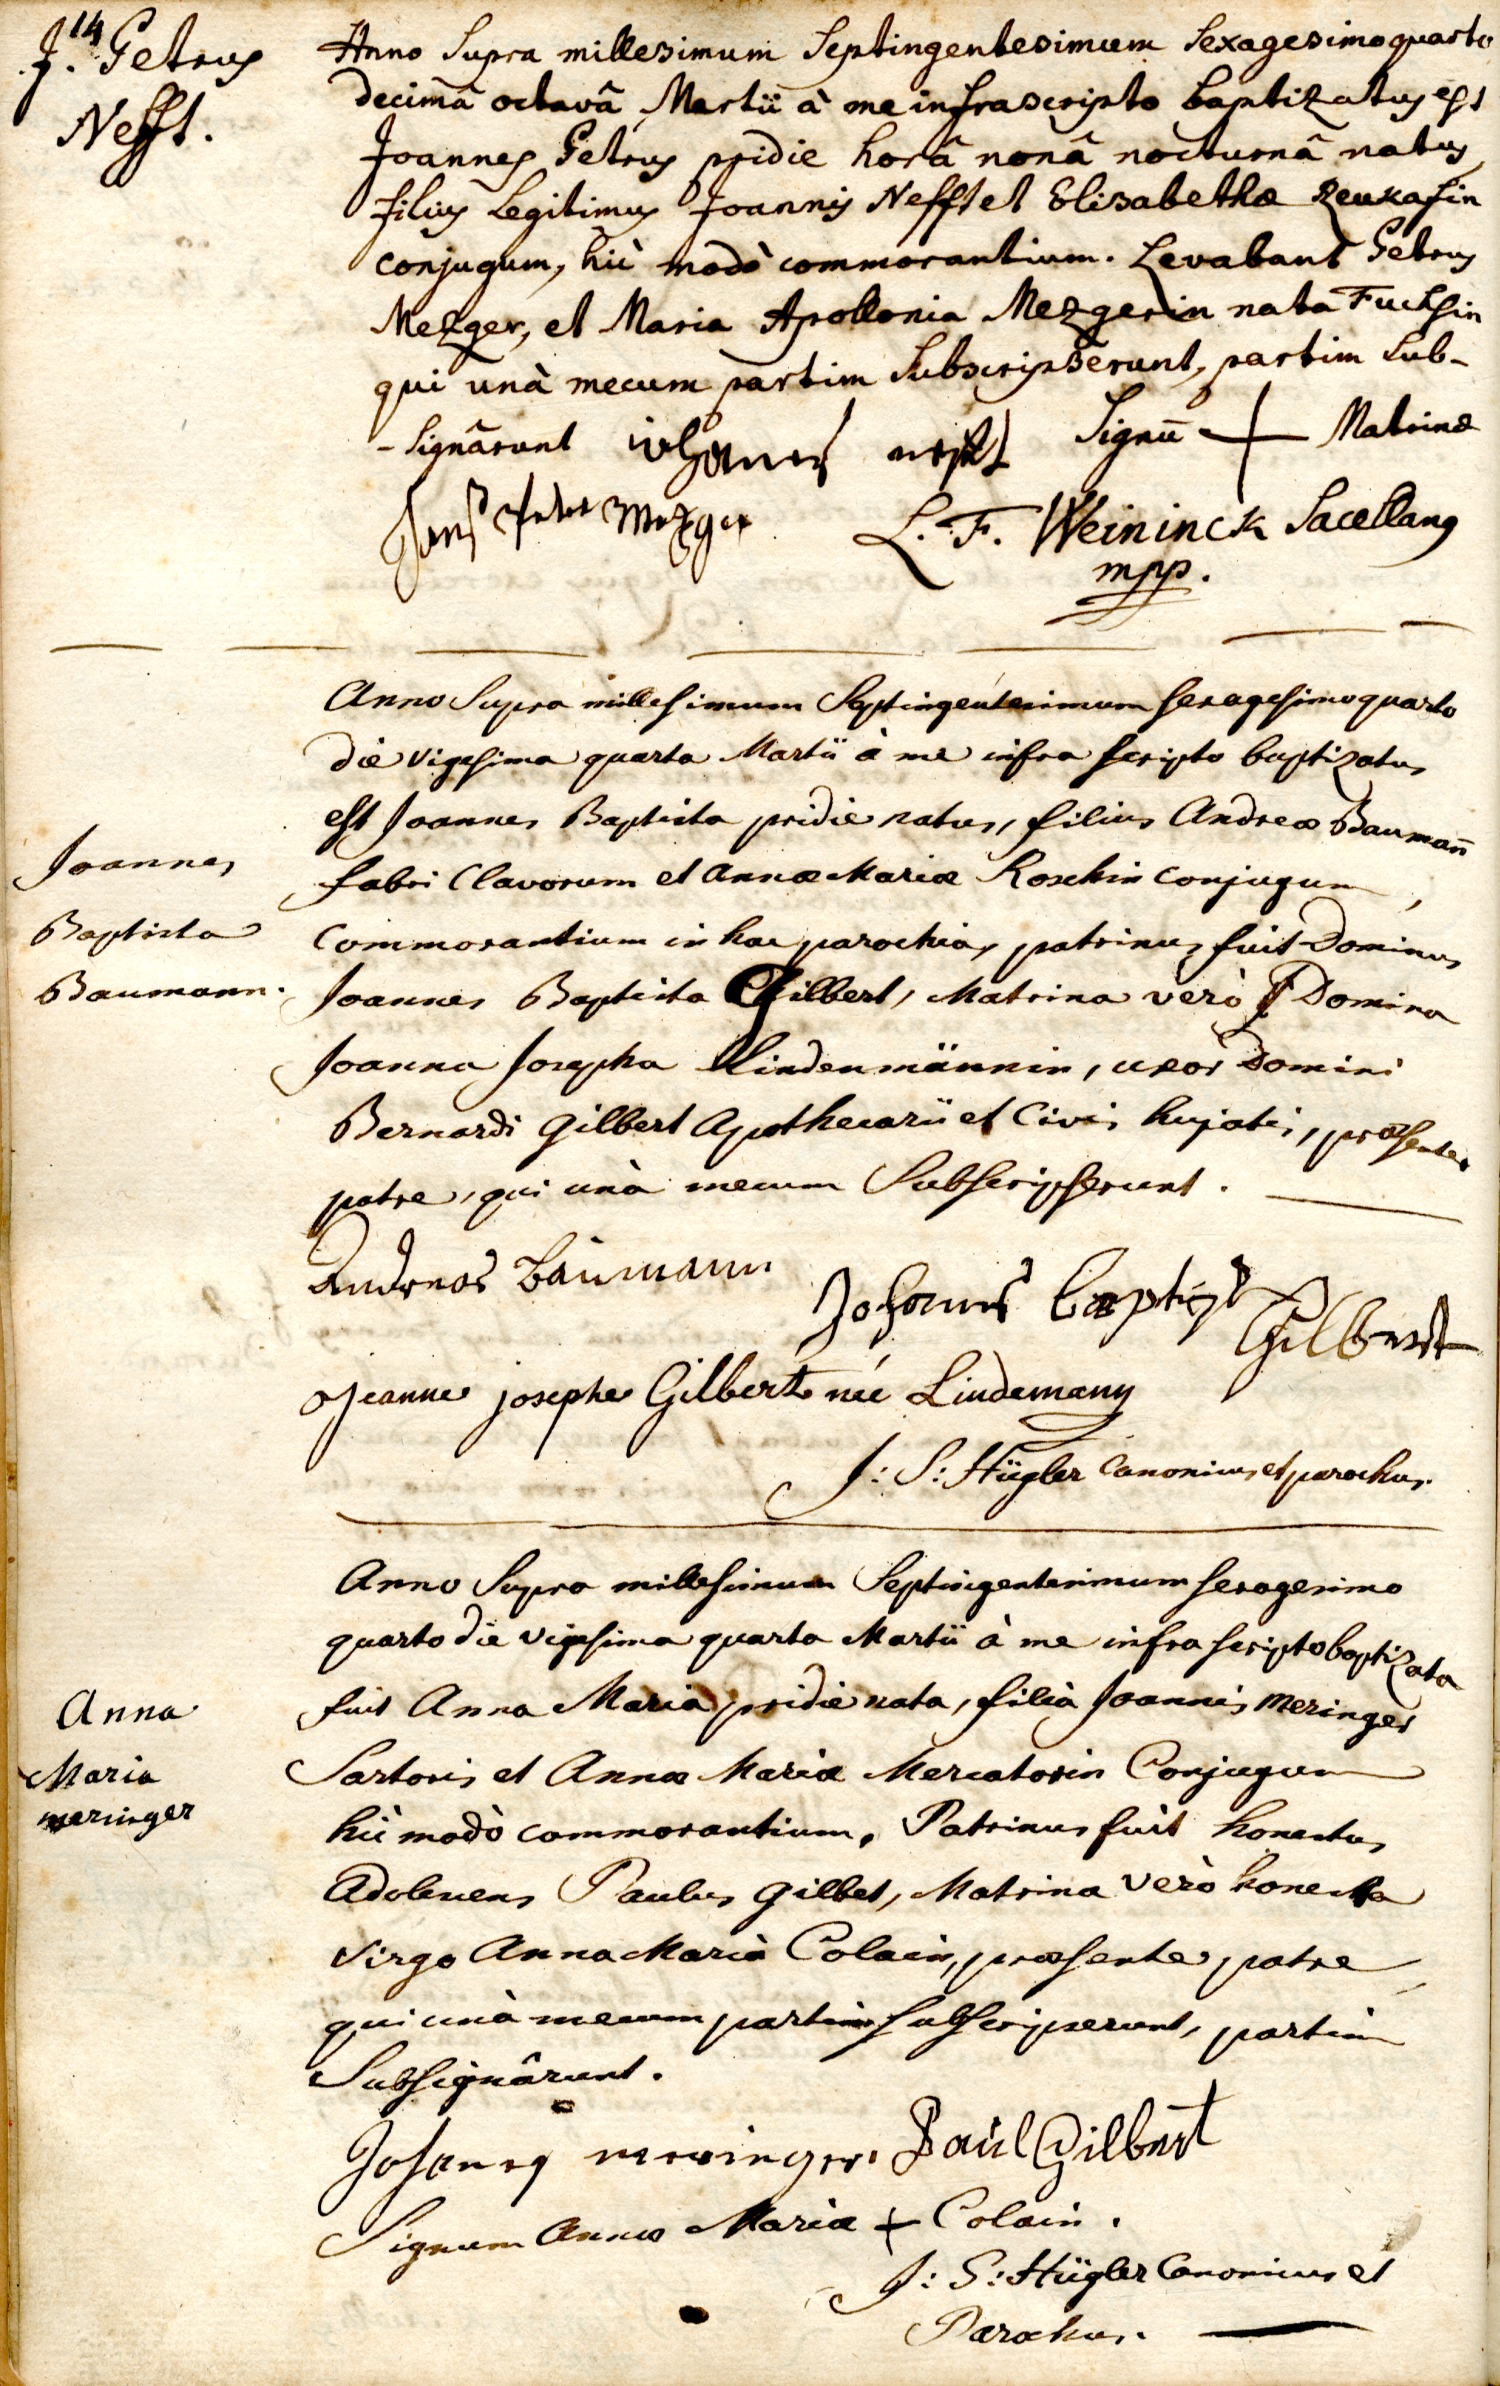 14
J. Petrus
Nefft.
Anno Supra millesimum Septingentesimum Sexagesimoquarto
decimâ octavâ Martii à me infrascripto baptizatus est
Joannes Petrus pridie horâ nonâ nocturnâ natus
filius Legitimus Joannis Nefft et Elisabethæ Reukafin
conjugum, hìc modò commorantium. Levabant Petrus
Mezger, et Maria Apollonia Mezgerin nata Fuchsin
qui unà mecum partim Subscripserunt, partim Sub-
-Signârunt iohannes nefft Signū + Matrinæ
Hans Peter Mezger L. F. Weininck Sacellanus
mpp.
Anno Supra millesimum Septingentesimum sexagesimoquarto
die vigesima quarta Martii à me infra scripto baptizatus
est Joannes Baptista pridie natus, filius Andreæ Baumañ
Joannes
fabri Clavorum et Annæ Mariæ Roschin conjugum,
Baptista
Commorantium in hac parochia, patrinus fuit Dominus
Baumann.
Joannes Baptista Gilbert, Matrina verò Domina
Joanna Josepha Lindenmännin, uxor Domini
Bernardi Gilbert Apothecarii et Civis hujatis, præsente
patre, qui unà mecum Subscripserunt.
Andreas Baumann
Johannes Baptist
Gilbert
Jeanne josephe Gilbert née Lindemann
J: S: Hügler Canonicus et parochus.
Anno Supra millesimum Septingentesimum sexagesimo
quarto die vigesima quarta Martii à me infra scripto baptizata
fuit Anna Maria pridie nata, filia Joannis Meringer
Anna
Maria
meringer
Sartoris et Annæ Mariæ Mercatorin Conjugum
hìc modò commorantium, Patrinus fuit honestus
Adolescens Paulus Gilbet, Matrina verò honesta
Virgo Anna Maria Colain, præsente patre
qui unà mecum partim subscripserunt, partim
Subsignârunt.
Johannes meringer. Paul Gilbert
Signum Annæ Mariæ + Colain.
J: S: Hügler Canonicus et
Parochus.